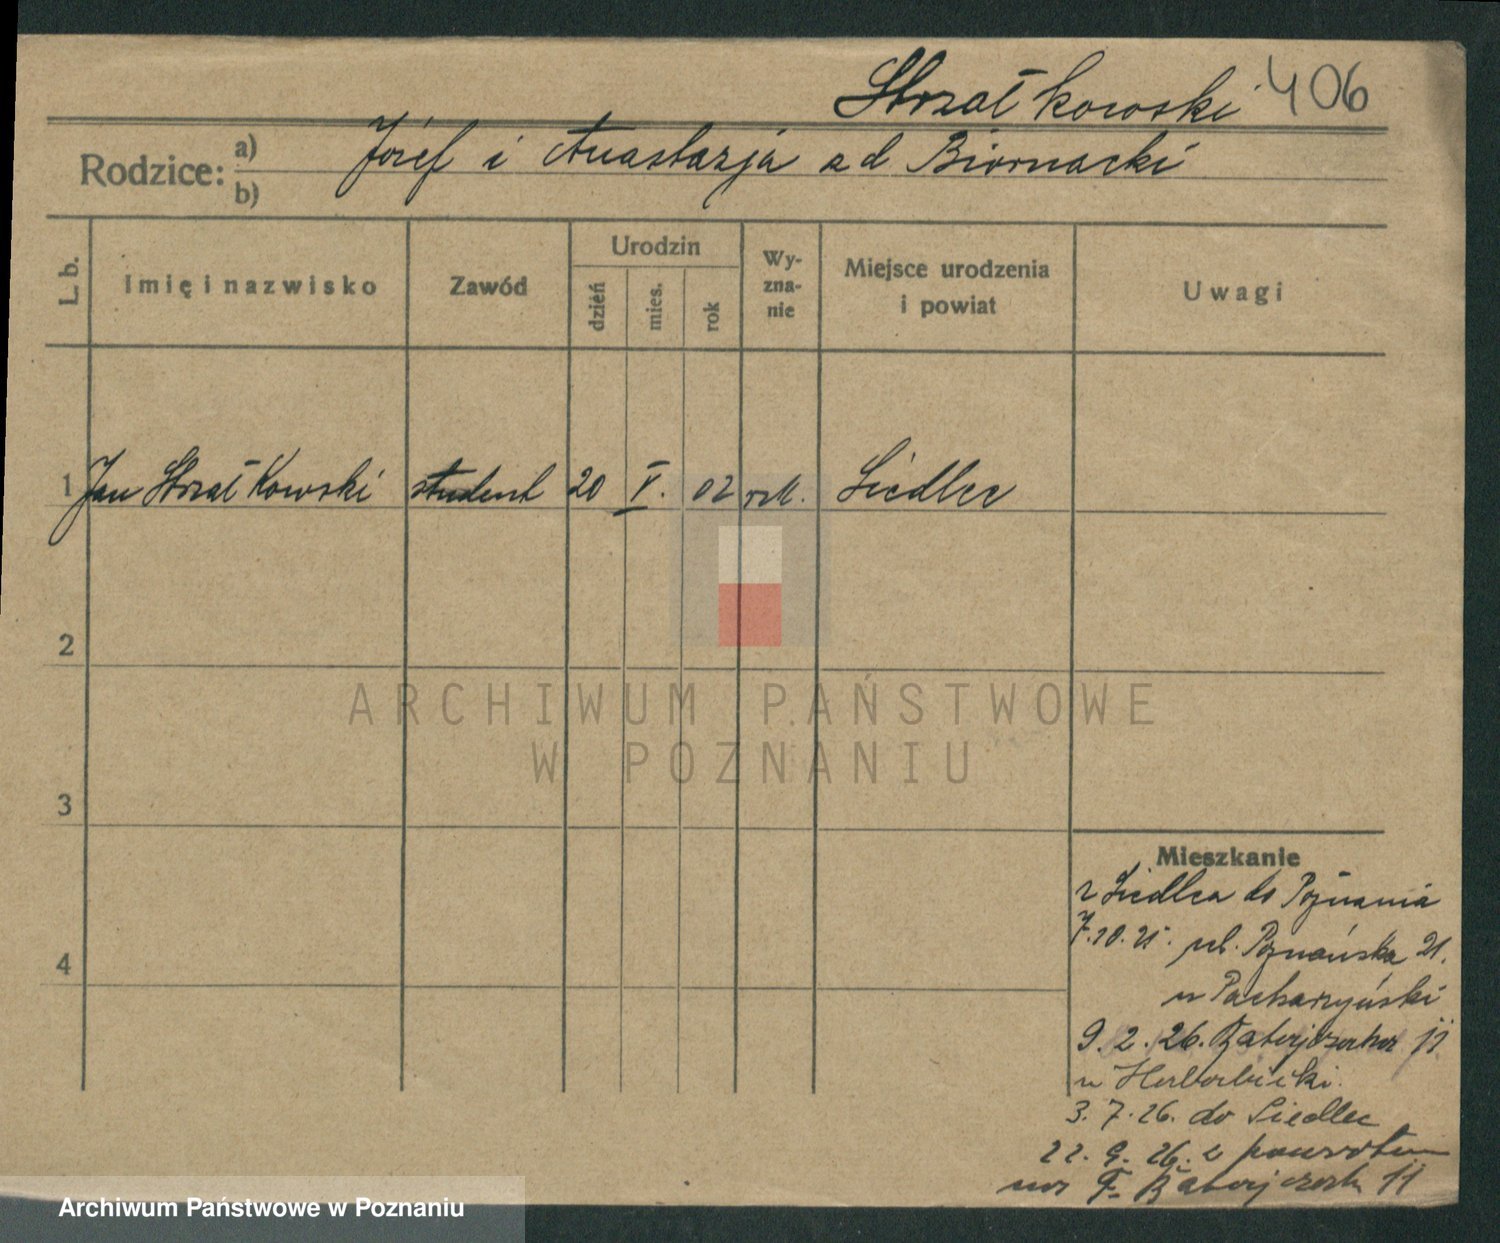 Strzałkowski 406
Rodzice: a) b) Józef i Anastazja z d. Biernacki
L. b.
Imię i nazwisko
Zawód
Urodzin
dzień
mies.
rok
Wy-
zna-
nie
Miejsce urodzenia
i powiat
Uwagi
1 Jan Strzałkowski student 20 V. 02 rzk. Siedlec
2
3
4
Mieszkanie
z Siedlca do Poznania
7.10.25. ul. Poznańska 21.
u Pacharzyński
9.2.26. 11
u
3.7.26. do Siedlec
22.9.26. z powrotem
11
ARCHIWUM PAŃSTWOWE
W POZNANIU
Archiwum Państwowe w Poznaniu